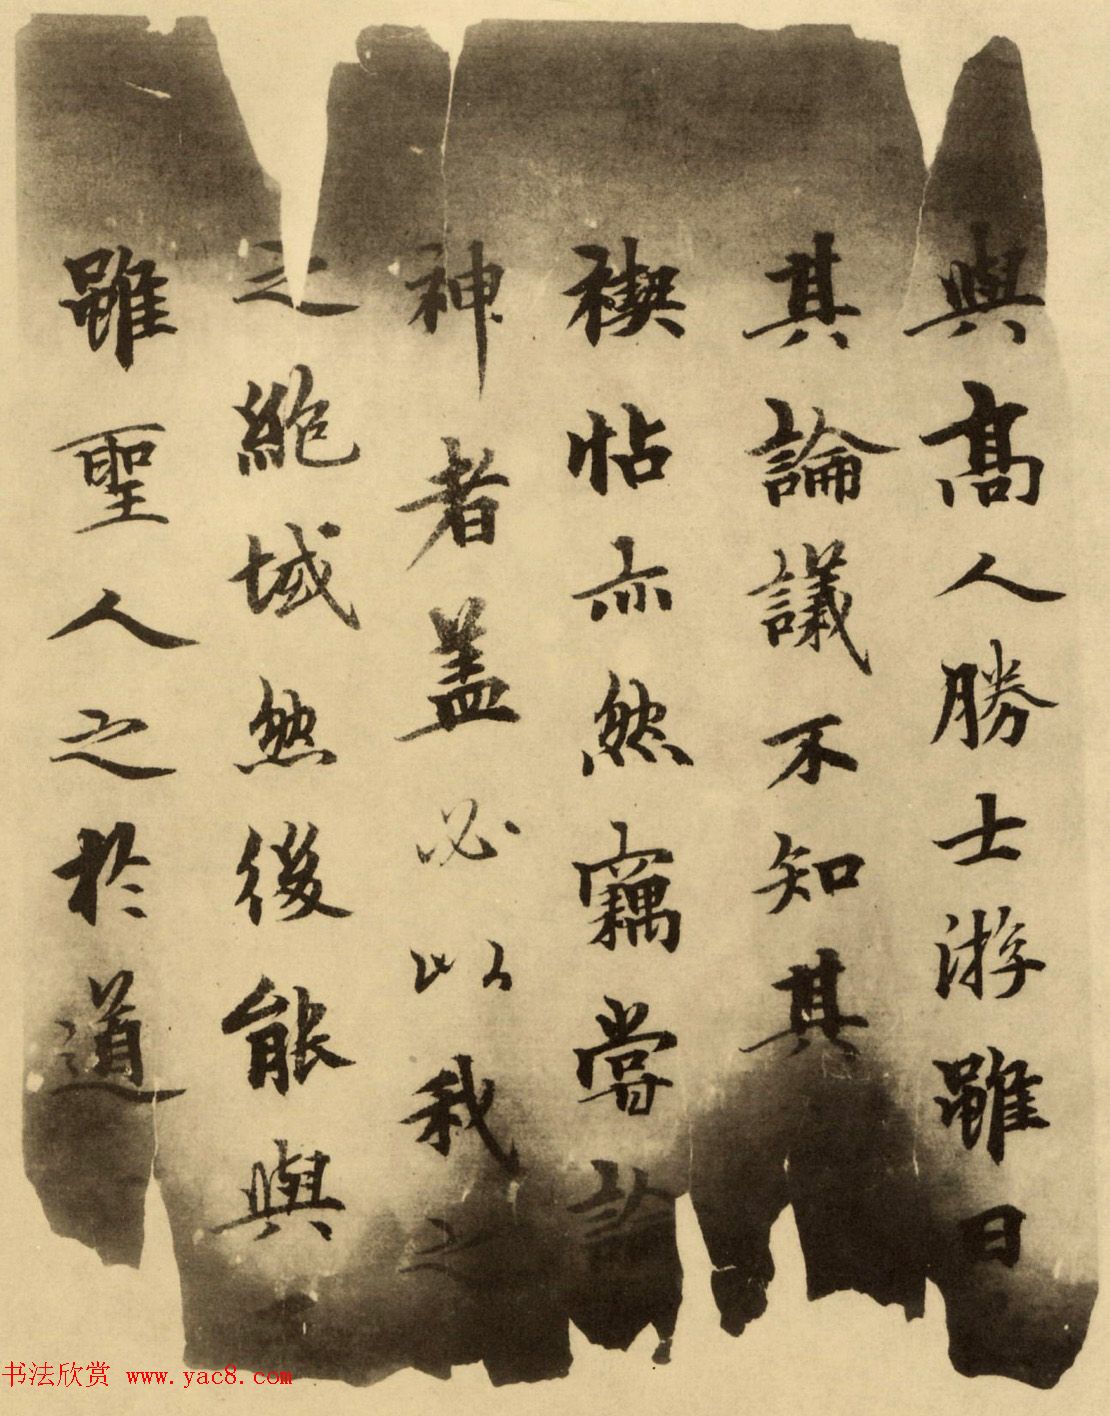 與高人勝士游雖日
其論議不知其
禊帖亦然竊嘗論
神者蓋必以我之
之絶域然後能與
雖聖人之於道
书法欣赏 www.yac8.com